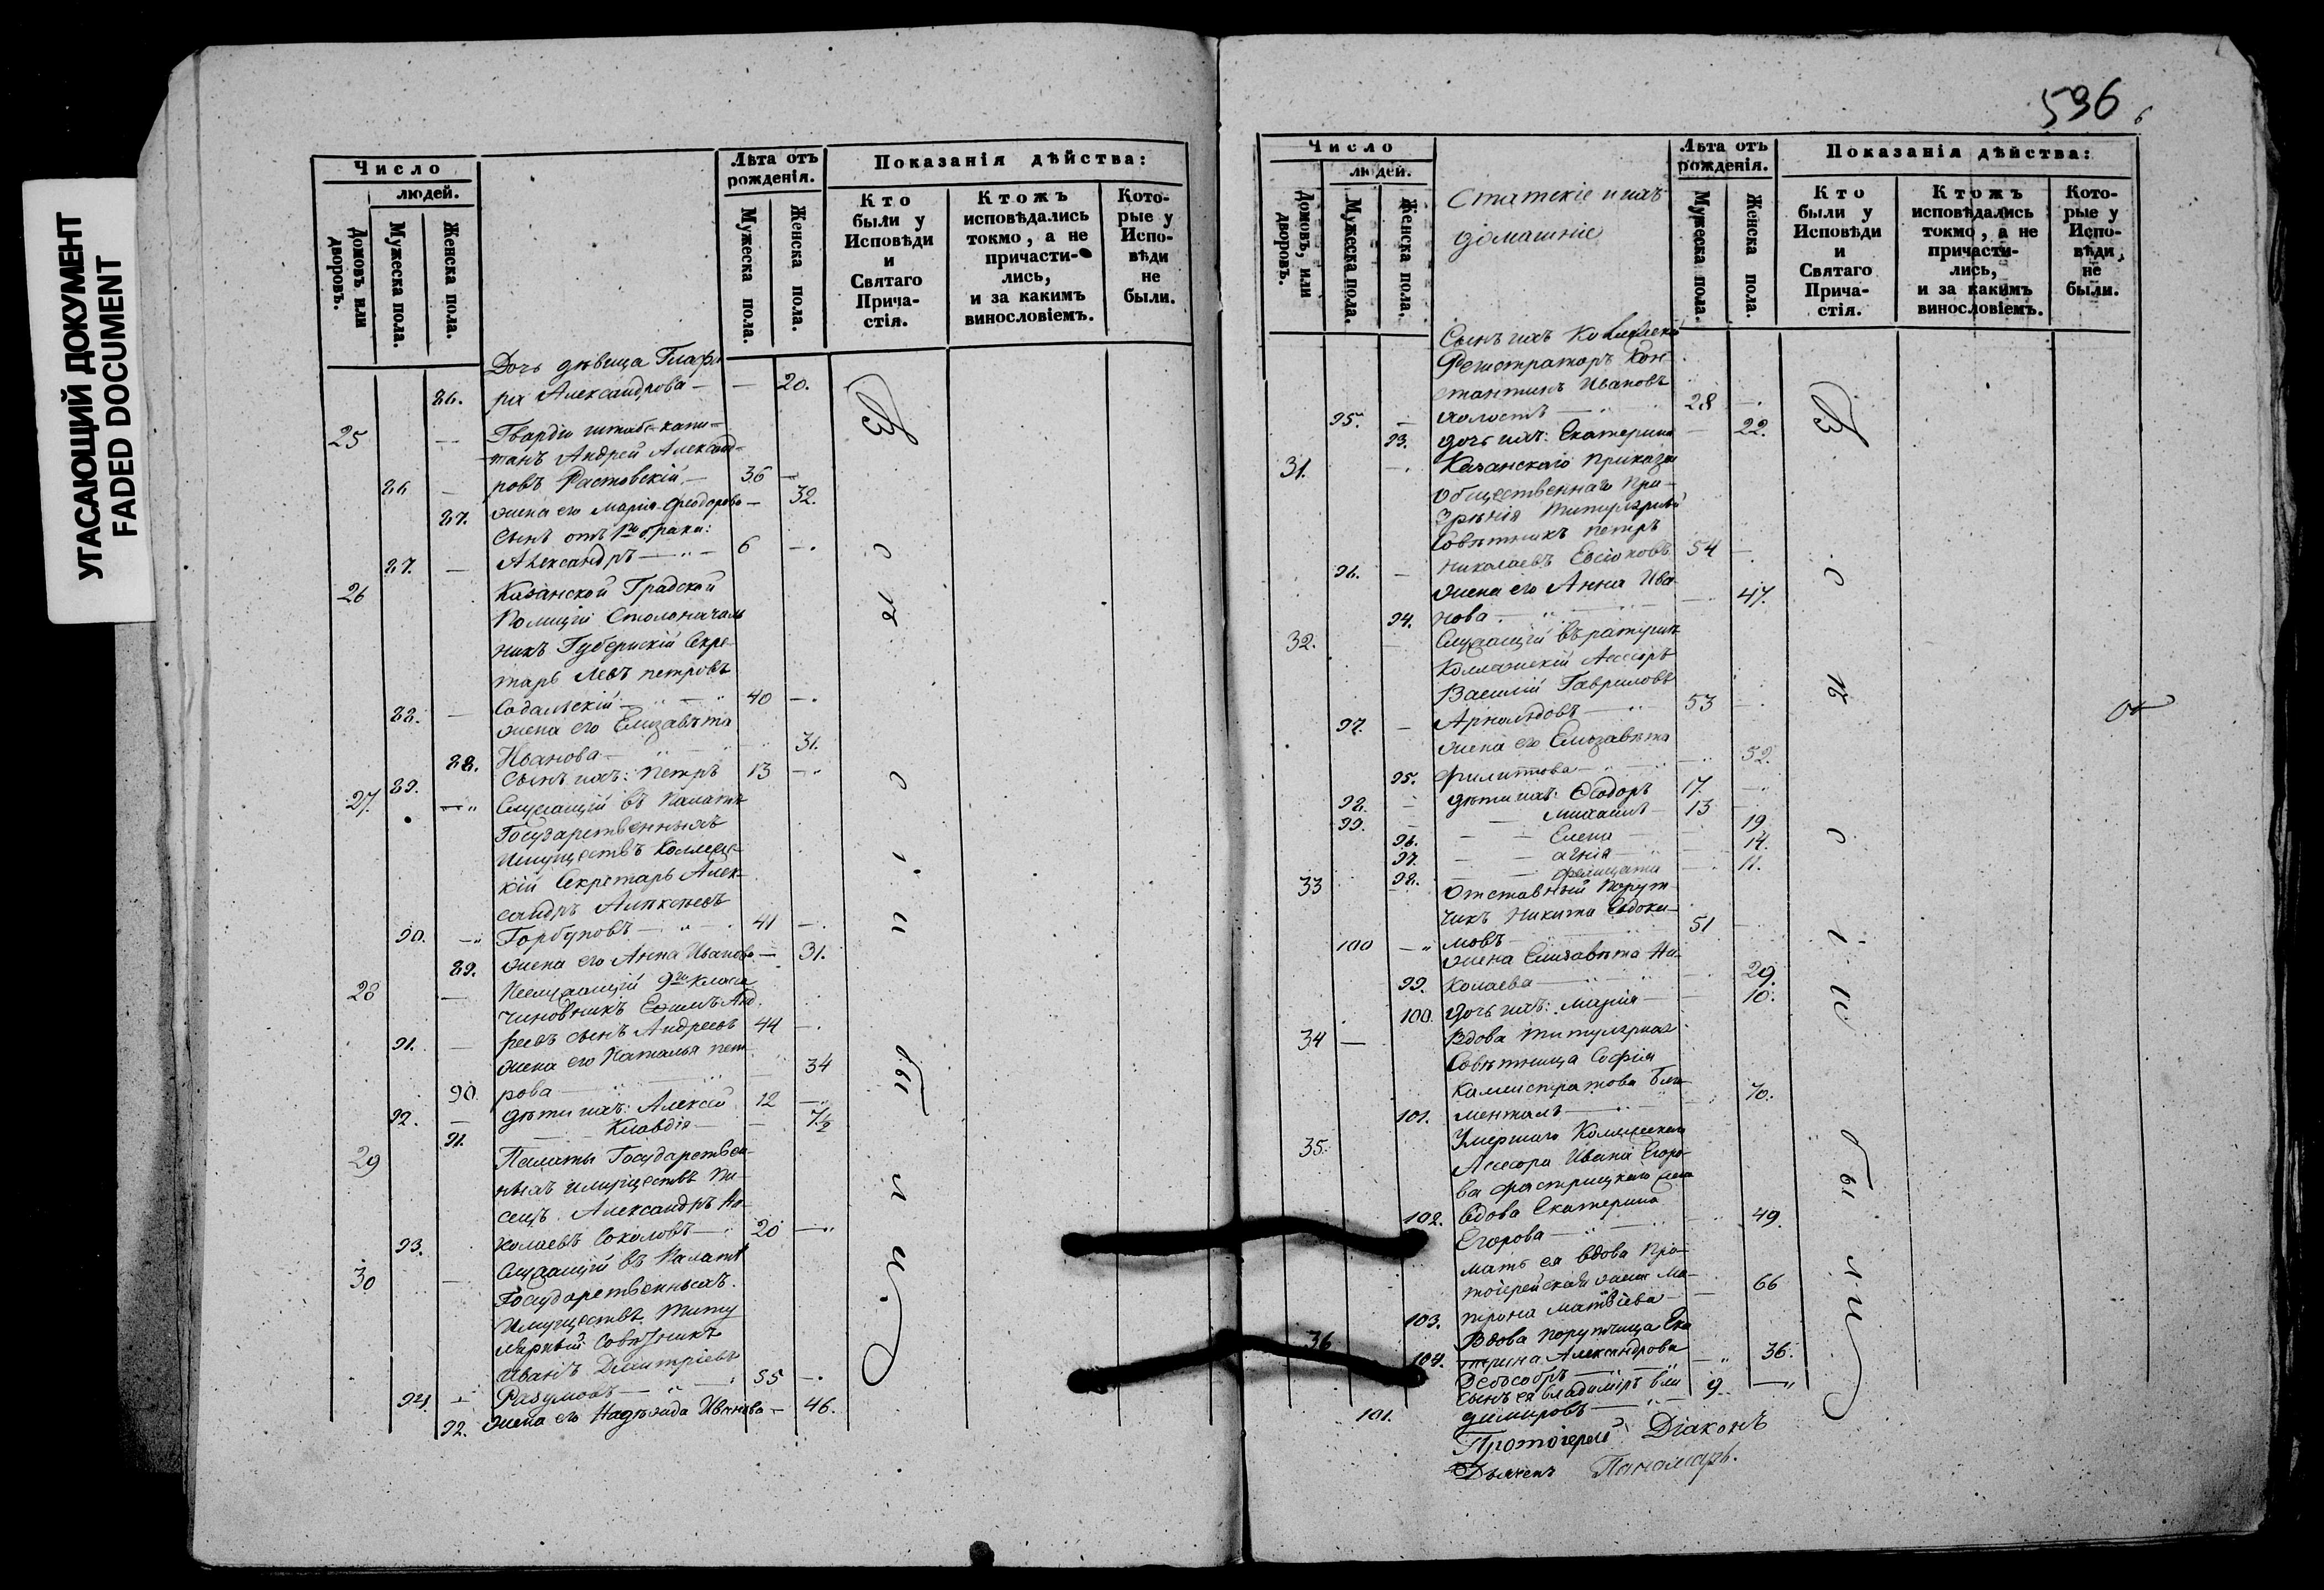 УГАСАЮЩИЙ ДОКУМЕНТ
FADED DOCUMENT
Число
людей.
Домовъ или дворовъ.
Мужеска пола.
Женска пола.
Лѣта отъ рожденія.
Мужеска пола.
Женска пола.
Показанія дѣйства:
Кто были у Исповѣди и Святаго Прича- стія.
Ктожъ исповѣдались токмо, а не причасти- лись, и за какимъ винословіемъ.
Кото- рые у Испо- вѣди не были.
Дочь дѣвица Глафи
86. ра Александрова — — 20.
25 — Гвардіи штабс-капи-
танъ Андрей Александ-
86 — ровъ Растовскій — 36 —
87. жена его Марія Феодорова — 32.
Сынъ отъ 1го брака:
87. — Александръ — 6 —.
26 Казанской Градской
Полиціи Столоначаль
никъ Губернскій Секре-
тарь Левъ Петровъ
88. — 40 —.
жена его Елизавѣта
88. Иванова — 31.
89. Сынъ ихъ: Петръ 13 —
27. — Служащій въ Палатѣ
Государственныхъ
Имуществъ Коллеж-
кій Секретарь Алек-
сандръ Алексѣевъ
90. — Горбуновъ — 41 —.
89. жена его Анна Иванова — 31.
28 — Неслужащій 9го класса
чиновникъ Ефимъ Анд.
91. — реевъ сынъ Андреевъ 44 —.
жена его Наталья Пет
90. рова — 34
92. — дѣти ихъ: Алексѣй 12 —
91. — Клавдія — — 7½
29 Палаты Государствен-
ныхъ Имуществъ Пи-
сецъ Александръ Ни-
93. колаевъ Соколовъ — 20 —
30 — Служащій въ Палатѣ
Государственныхъ
Имуществъ Титу
лярный Совѣтникъ
Иванъ Димитріевъ
94. — Разумовъ — 55 —.
92. жена его Надежда Иванова — 46.
Всѣ сіи были.
596
6
Число
людей.
Домовъ, или дворовъ.
Мужеска пола.
Женска пола.
Статскіе и ихъ
домашніе
Лѣта отъ рожденія.
Мужеска пола.
Женска пола.
Показанія дѣйства:
Кто были у Исповѣди и Святаго Прича- стія.
Ктожъ исповѣдались токмо, а не причасти- лись, и за какимъ винословіемъ.
Кото- рые у Испо- вѣди не были.
Сынъ ихъ Коллежскій
Регистраторъ Кон-
стантинъ Ивановъ
95. — холостъ — 28 —.
93. дочь ихъ: Екатерина — 22.
31. —. Казанскаго Приказа
Общественнаго При-
зрѣнія Титулярный
Совѣтникъ Петръ
96. — Николаевъ 54 —
жена его Анна Ива-
94. нова — 47.
32. — Служащій въ ратушѣ
Коллежскій Ассесоръ
Василій Гавриловъ
97. — 53 —
жена его Елизавѣта
95. Филиппова — 52.
98. — дѣти ихъ: Ѳеодоръ 17. —
99. — Михаилъ — 13
96. — — Елена — 19
97. — — Агнія — 14.
98. — — Фелицата — 11.
33 — Отставный Порут-
чикъ Никита Евдоки-
100 — мовъ — 51
жена Елизавѣта Ни-
99. колаева — 29.
100. дочь ихъ: Марія — 10.
34 — Вдова Титулярная
Совѣтница Софія
Калистратова
101. — 70.
35. Умершаго Коллежскаго
Ассесора Ивана Егоро-
ва
102. вдова Екатерина
Егорова — 49.
мать ея вдова Про-
тоіерейская жена Ма-
103. трона Матвѣева — 66
36 Вдова Порутчица Ека
104. терина Александрова — 36.
Сынъ ея Владиміръ Вла 9. —
101. диміровъ —
Всѣ сіи были
Протоіерей Діаконъ
Дьячекъ Пономарь.